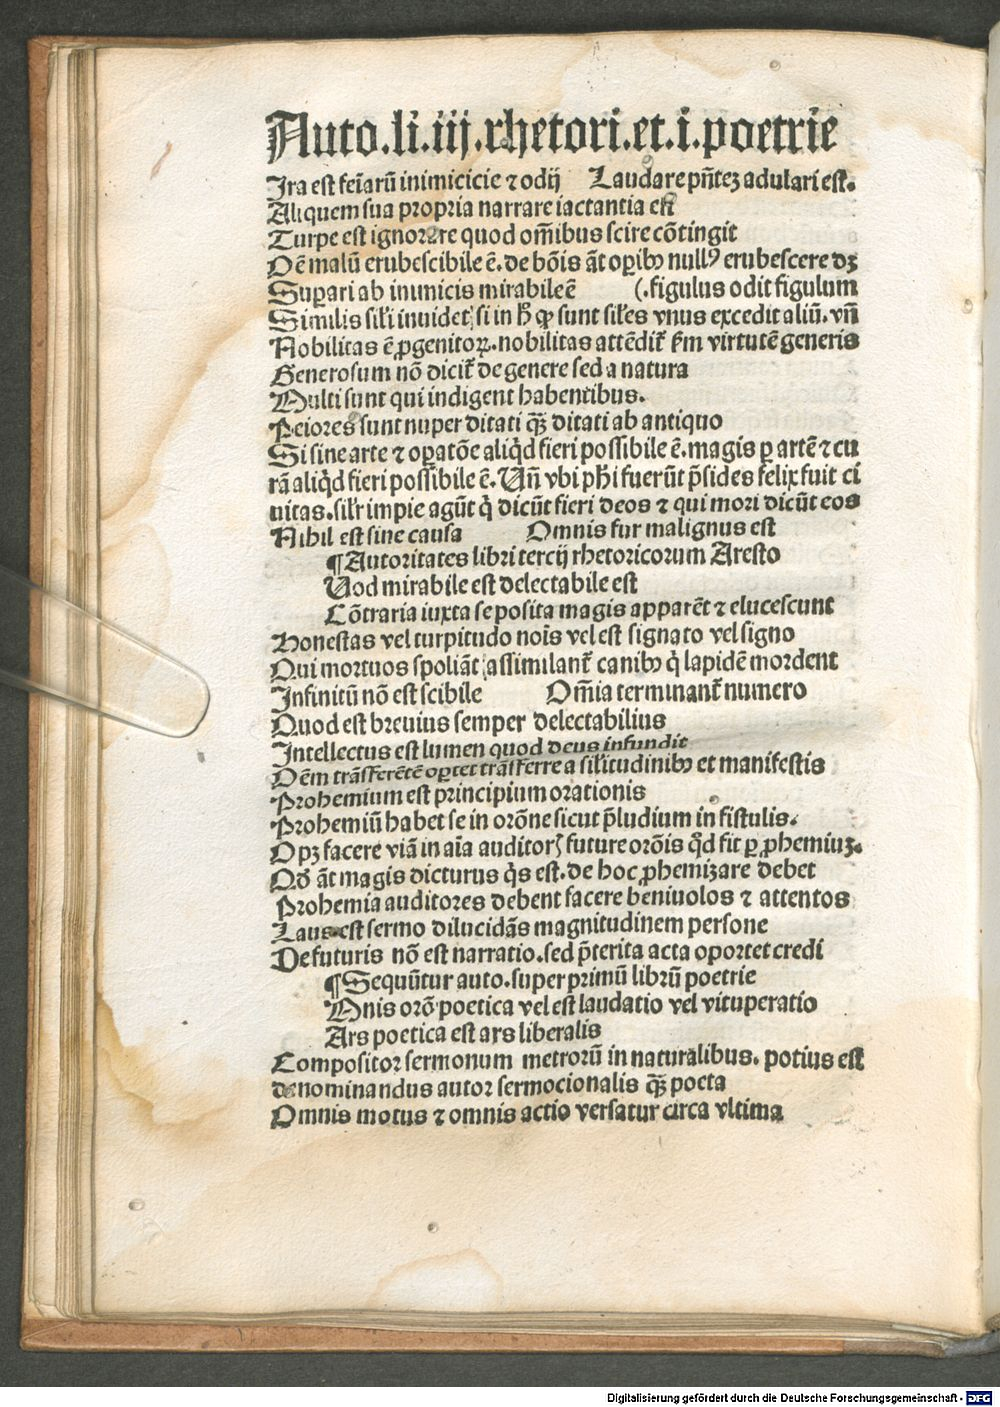 Auto.li.iij.rhetori.et.i.poetrie
Ira est feīarū inimicicie ⁊ odij Laudare pn̄tez adulari est.
Aliquem sua propria narrare iactantia est
Turpe est ignorare quod om̄ibus scire cōtingit
Oē malū erubescibile ē. de bōis āt oꝑibꝫ nullꝰ erubescere dꝫ
Suꝑari ab inimicis mirabile ē (.figulus odit figulum
Similis sil'i inuidet si in hͦ ꝙ sunt sil'es vnus excedit aliū. vn̄
Nobilitas ē ꝓgenitoꝝ. nobilitas attēdit᷑ ẜm virtutē generis
Generosum nō dicit᷑ de genere sed a natura
Multi sunt qui indigent habentibus.
Peiores sunt nuper ditati qꝫ̄ ditati ab antiquo
Si sine arte ⁊ oꝑatōe aliqͥd fieri possibile ē. magis ꝑ artē ⁊ cu
rā aliqͥd fieri possibile ē. Vn̄ vbi ph̄i fuerūt p̄sides felix fuit ci
uitas. sil'r impie agūt qͥ dicūt fieri deos ⁊ qui mori dicūt eos
Nihil est sine causa Omnis fur malignus est
¶Autoritates libri tercij rhetoricorum Aresto
Uod mirabile est delectabile est
Cōtraria iuxta se posita magis apparēt ⁊ elucescunt
Honestas vel turpitudo nois̄ vel est signato vel signo
Qui mortuos spoliāt assimilant᷑ canibꝫ qͥ lapidē mordent
Infinitū nō est scibile Om̄ia terminant᷑ numero
Quod est breuius semper delectabilius
Intellectus est lumen quod deus infundit
Oēm trāsferētē oꝑtet trāsferre a sil'itudinibꝫ et manifestis
Prohemium est principium orationis
Prohemiū habet se in orōne sicut p̄ludium in fistulis.
Opꝫ facere viā in aīa auditorꝭ future orōis qͦd fit ꝑ ꝓhemiuꝫ.
Qd̄ āt magis dicturus qͥs est. de hoc ꝓhemizare debet
Prohemia auditores debent facere beniuolos ⁊ attentos
Laus est sermo dilucidās magnitudinem persone
De futuris nō est narratio. sed p̄terita acta oportet credi
¶Sequūtur auto. super primū librū poetrie
Mnis orō poetica vel est laudatio vel vituperatio
Ars poetica est ars liberalis
Compositor sermonum metrorū in naturalibus. potius est
denominandus autor sermocionalis qꝫ̄ poeta
Omnis motus ⁊ omnis actio versatur circa vltima
Digitalisierung gefördert durch die Deutsche Forschungsgemeinschaft - DFG